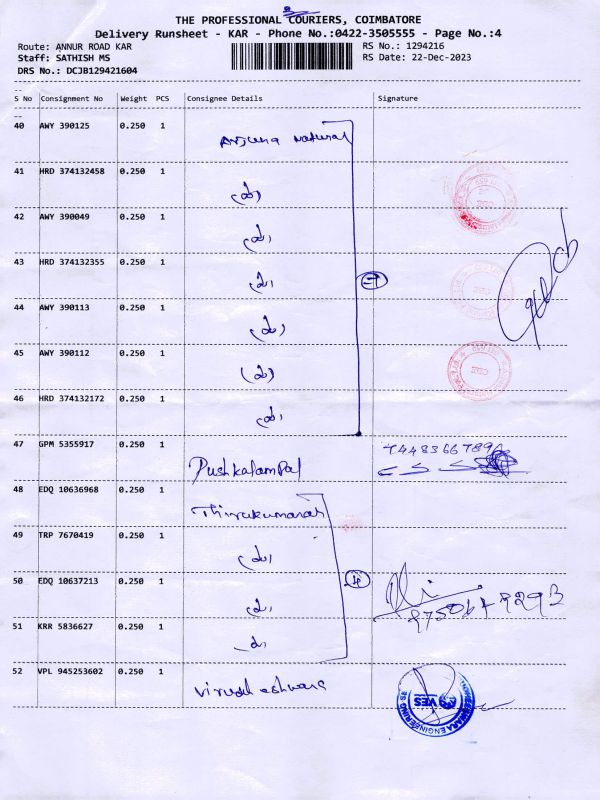 THE PROFESSIONAL COURIERS, COIMBATORE
Delivery Runsheet - KAR - Phone No.:0422-3505555 - Page No.:4
Route: ANNUR ROAD KAR RS No.: 1294216
Staff: SATHISH MS RS Date: 22-Dec-2023
DRS No.: DCJB129421604
S No Consignment No Weight PCS Consignee Details Signature
40 AWY 390125 0.250 1 Anjuna Natural
41 HRD 374132458 0.250 1
42 AWY 390049 0.250 1
43 HRD 374132355 0.250 1
7
44 AWY 390113 0.250 1
45 AWY 390112 0.250 1
46 HRD 374132172 0.250 1
47 GPM 5355917 0.250 1 Pushkalampal
48 EDQ 10636968 0.250 1 Thirukumaran
49 TRP 7670419 0.250 1
50 EDQ 10637213 0.250 1
4
51 KRR 5836627 0.250 1
52 VPL 945253602 0.250 1
YES